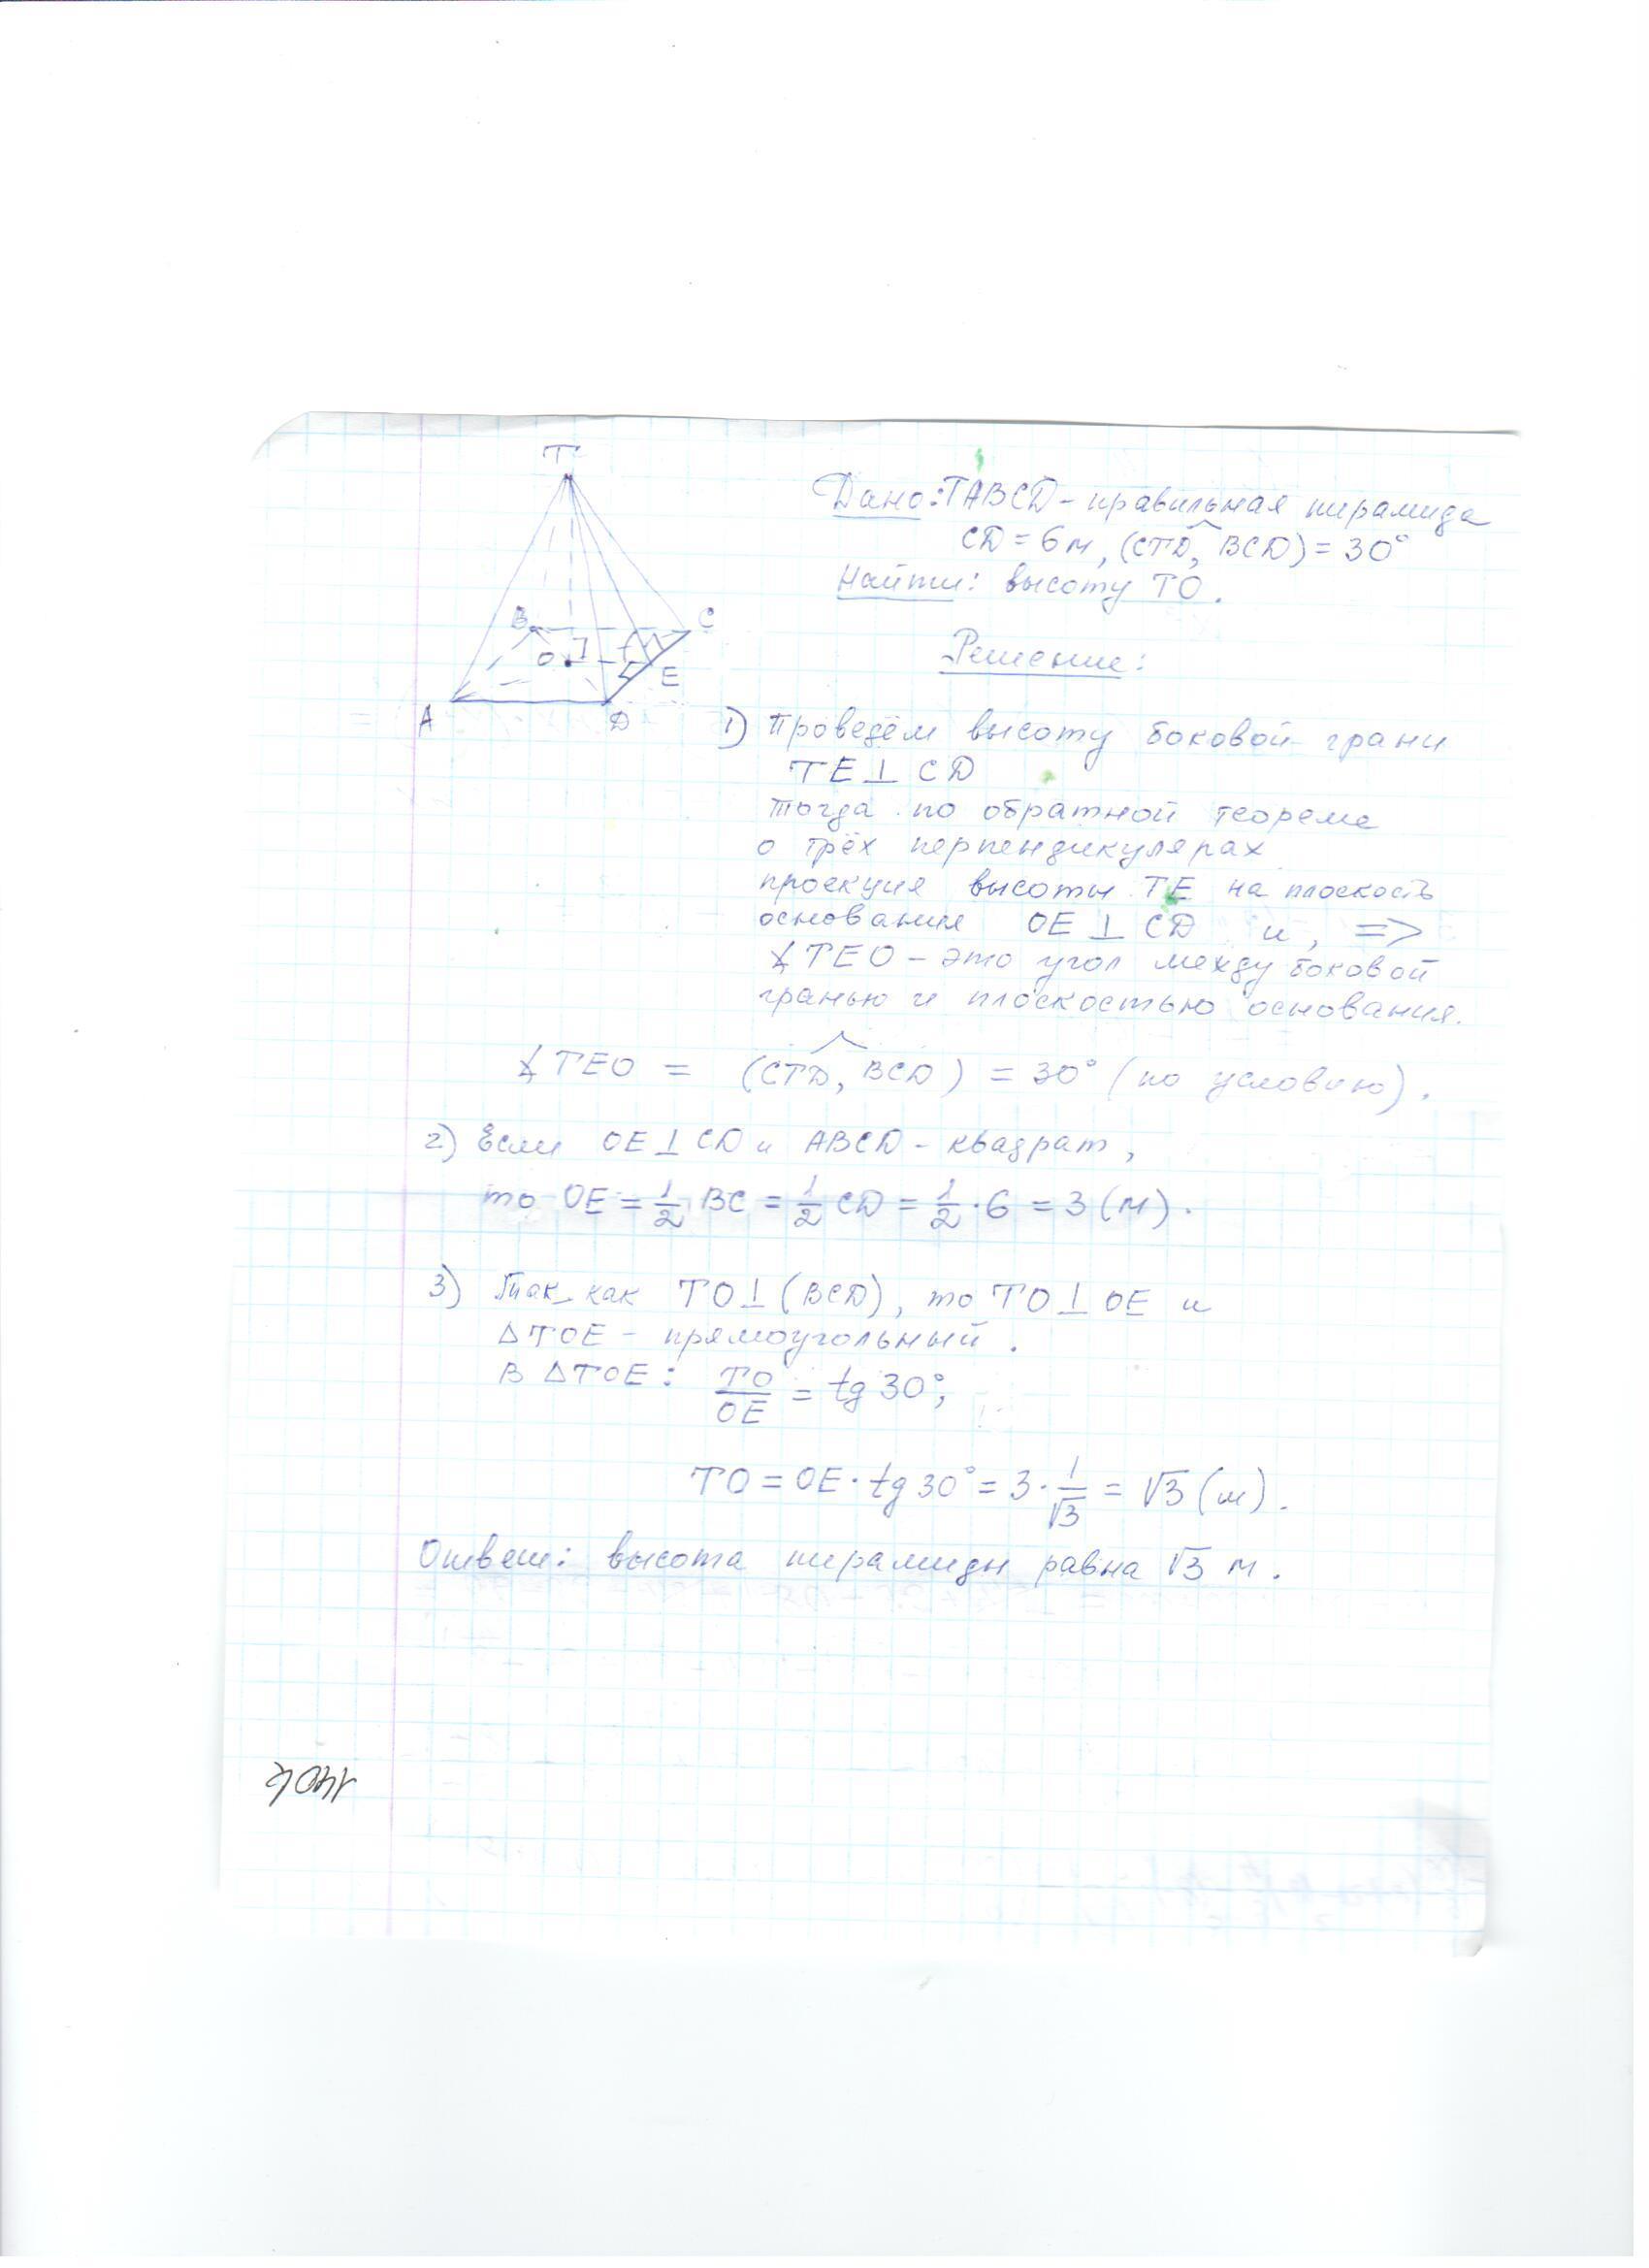 T
B
C
O
E
A
D
Дано: TABCD - правильная пирамида
CD = 6м, (CTD, BCD) = 30°
Найти: высоту TO.
Решение:
1) Проведём высоту боковой грани
TE ⊥ CD
Тогда по обратной теореме
о трёх перпендикулярах
проекция высоты TE на плоскость
основания OE ⊥ CD и, =>
∡TEO - это угол между боковой
гранью и плоскостью основания.
∡TEO = (CTD, BCD) = 30° (по условию).
2) Если OE ⊥ CD и ABCD - квадрат,
то OE = 1/2 BC = 1/2 CD = 1/2 · 6 = 3 (м).
3) Так как TO ⊥ (BCD), то TO ⊥ OE и
ΔTOE - прямоугольный.
В ΔTOE: TO/OE = tg 30°;
TO = OE · tg 30° = 3 · 1/√3 = √3 (м).
Ответ: высота пирамиды равна √3 м.